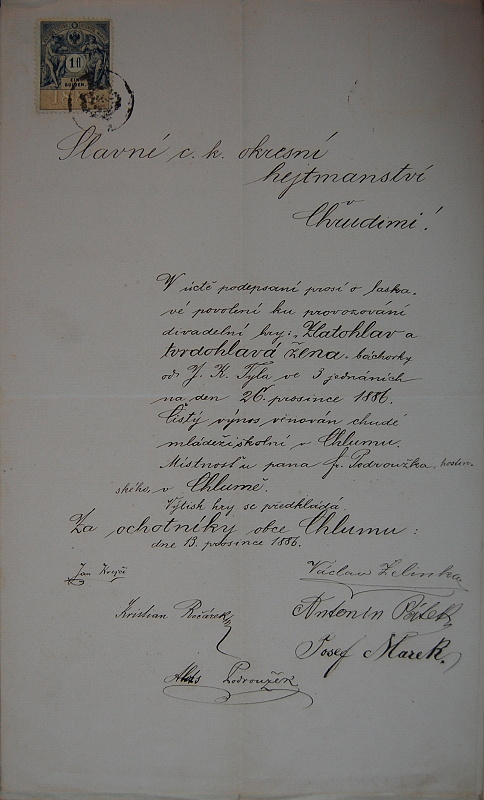 1 fl
EIN
GULDEN
Slavné c. k. okresní
hejtmanství
v
Chrudimi!
V úctě podepsaní prosí o laska-
vé povolení ku provozování
divadelní hry: „Zlatohlav a
tvrdohlavá žena" báchorky
od J. K. Tyla ve 3 jednáních
na den 26. prosince 1886.
Čistý výnos věnován chudé
mládeži školní v Chlumu.
Místnosť u pana Fr. Podroužka, hostin-
ského, v Chlumě.
Výtisk hry se předkládá
Za ochotníky obce Chlumu:
dne 13. prosince 1886.
Jan Krejčí
Václav Zelinka
Kristian
Antonín
Josef Marek.
Alois Podroužek